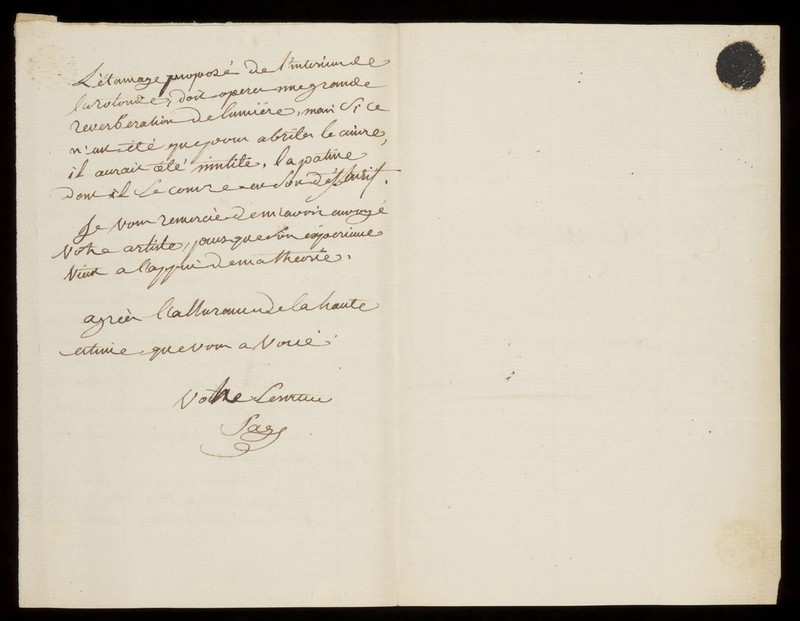 L'étamage proposé de l'interieur de
la rotonde, doit operer une grande
reverberation de lumiére, mais si ce
n'eut été que pour abriter le cuivre,
il aurait été inutile, la patine
dont il se couvre
Je vous remercie de m'avoir envoyé
votre artiste, puisque son experience
vient a l'appui de ma theorie.
agréér l'assurance de la haute
estime que vous a voué
votre serviteur
Sage